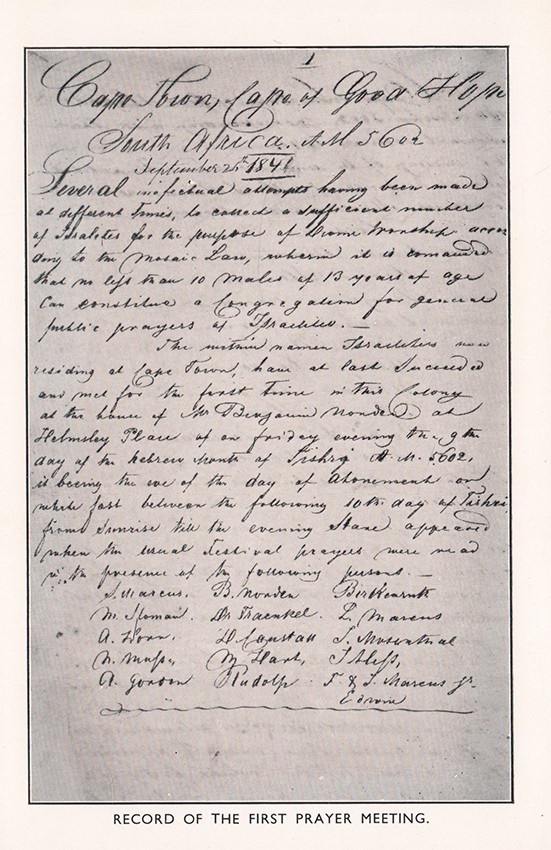 1
Cape Town, Cape of Good Hope
South Africa. A.M 5602
September 25th 1841
Several inefectual attempts having been made
at different times, to collect a sufficient number
of Israelites for the purpose of Divine Worship accor
ding to the Mosaic Law, wherein it is comanded
that no less than 10 Males of 13 years of age
Can constitute a Congregation for general
public prayers of Israelites. —
The within named Israeliten now
residing at Cape Town, have at last Succeeded
and met for the first time in this Colony
at the house of Mr Benjamin Norden at
Helmsley Place of on friday evening the 9th
day of the hebrew Month of Tishry A. M. 5602,
is beeing the eve of the day of Atonement on
which fast between the following 10th day of Tishri
from Sunrise till the evening Stars appeared
when the usual Festival prayers were read
in the presence of the following persons. —
S. Marcus. B. Norden Birkenruth
M. Sloman. Dr Fraenkel. L. Marcus
A. Horn. H. Canstatt J. Mosenthal
N. Moss, M Hart,
A. Gordon Rudolph F & J. Marcus jr.
Edwin
RECORD OF THE FIRST PRAYER MEETING.